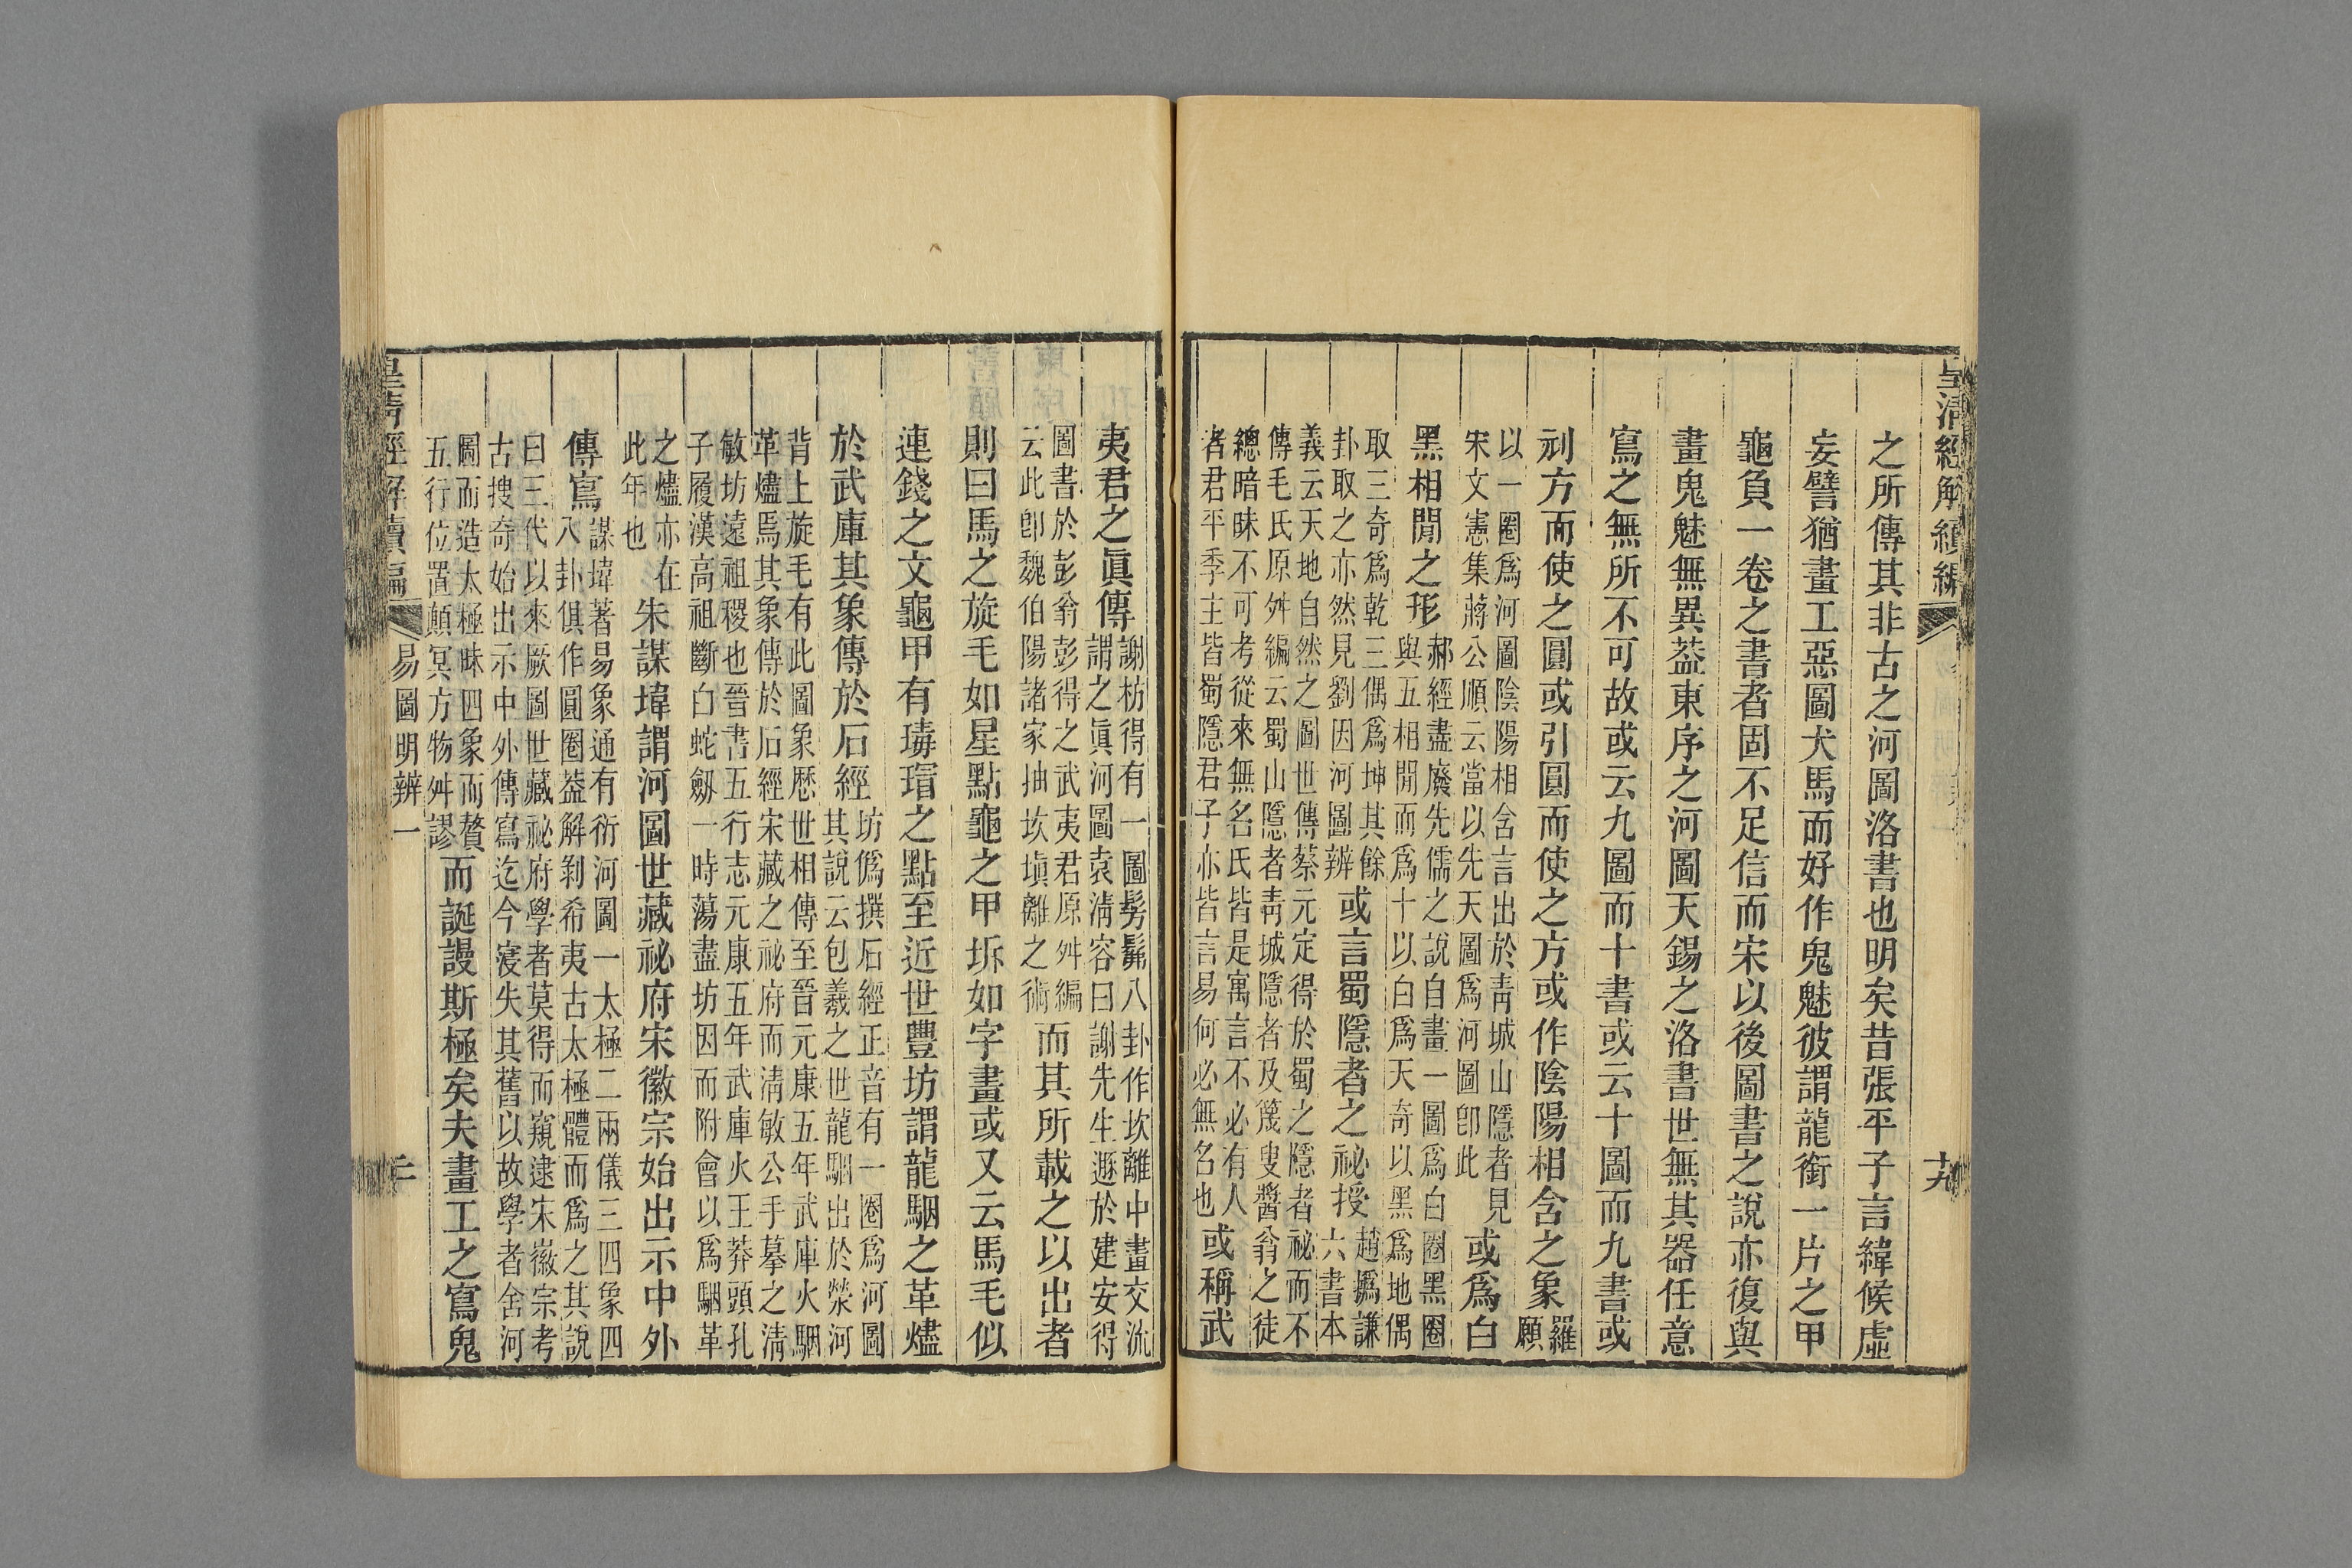 皇清經解續編
十九
之所傳其非古之河圖洛書也明矣昔張平子言緯候虛
妄譬猶畫工惡圖犬馬而好作鬼魅彼謂龍銜一片之甲
龜負一卷之書者固不足信而宋以後圖書之說亦復與
畫鬼魅無異葢東序之河圖天錫之洛書世無其器任意
寫之無所不可故或云九圖而十書或云十圖而九書或
刓方而使之圓或引圓而使之方或作陰陽相含之象羅願
以一圈爲河圖陰陽相含言出於靑城山隱者見
宋文憲集蔣公順云當以先天圖爲河圖卽此
或爲白
黑相閒之形
郝經盡廢先儒之說自畫一圖爲白圈黑圈
與五相閒而爲十以白爲天奇以黑爲地偶
取三奇爲乾三偶爲坤其餘
卦取之亦然見劉因河圖辨
或言蜀隱者之祕授
趙撝謙
六書本
義云天地自然之圖世傳蔡元定得於蜀之隱者祕而不
傳毛氏原舛編云蜀山隱者靑城隱者及篾叟醬翁之徒
總暗昧不可考從來無名氏皆是寓言不必有人
者君平季主皆蜀隱君子亦皆言易何必無名也
或稱武
夷君之眞傳
謝枋得有一圖髣髴八卦作坎離中畫交流
謂之眞河圖袁淸容曰謝先生遯於建安得
圖書於彭翁彭得之武夷君原舛編
云此卽魏伯陽諸家抽坎塡離之術
而其所載之以出者
則曰馬之旋毛如星點龜之甲坼如字畫或又云馬毛似
連錢之文龜甲有瑇瑁之點至近世豐坊謂龍駰之革燼
於武庫其象傳於石經
坊僞撰石經正音有一圈爲河圖
其說云包羲之世龍駰出於滎河
背上旋毛有此圖象歷世相傳至晉元康五年武庫火駰
革燼焉其象傳於石經宋藏之祕府而淸敏公手摹之淸
敏坊遠祖稷也晉書五行志元康五年武庫火王莽頭孔
子履漢高祖斷白蛇劒一時蕩盡坊因而附會以爲駰革
之燼亦在
此年也
朱謀㙔謂河圖世藏祕府宋徽宗始出示中外
傳寫
謀㙔著易象通有衍河圖一太極二兩儀三四象四
八卦俱作圓圈葢解剝希夷古太極體而爲之其說
曰三代以來厥圖世藏祕府學者莫得而窺逮宋徽宗考
古搜奇始出示中外傳寫迄今寖失其舊以故學者舍河
圖而造太極昧四象而贅
五行位置顛冥方物舛謬
而誕謾斯極矣夫畫工之寫鬼
皇淸經解續編
易圖明辨一
二